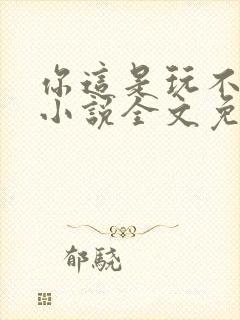 你這是玩不
小說全文免
郁驍